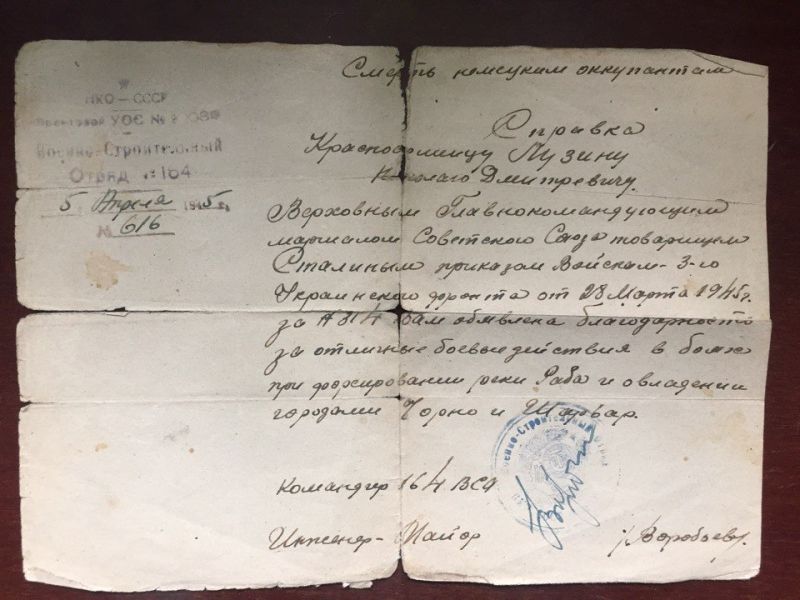 Смерть немецким оккупантам
НКО — СССР
УОС №
Военно-Строительный
Отряд № 164
5 Апреля 1945 г.
№ 616
Справка
Красноармейцу Лузину
Николаю Дмитревичу.
Верховным Главнокомандующим
маршалом Советского Союза товарищем
Сталиным приказом Войскам 3-го
Украинского фронта от 28 Марта 1945 г.
за № 314 Вам обявлена благодарность
за отличные боевые действия в боях
при форсировании реки Раба и овладении
городами Чорно и Шарвар.
Командир 164 ВСО
Инженер-Майор /Воробьев/.
Военно-Строительный